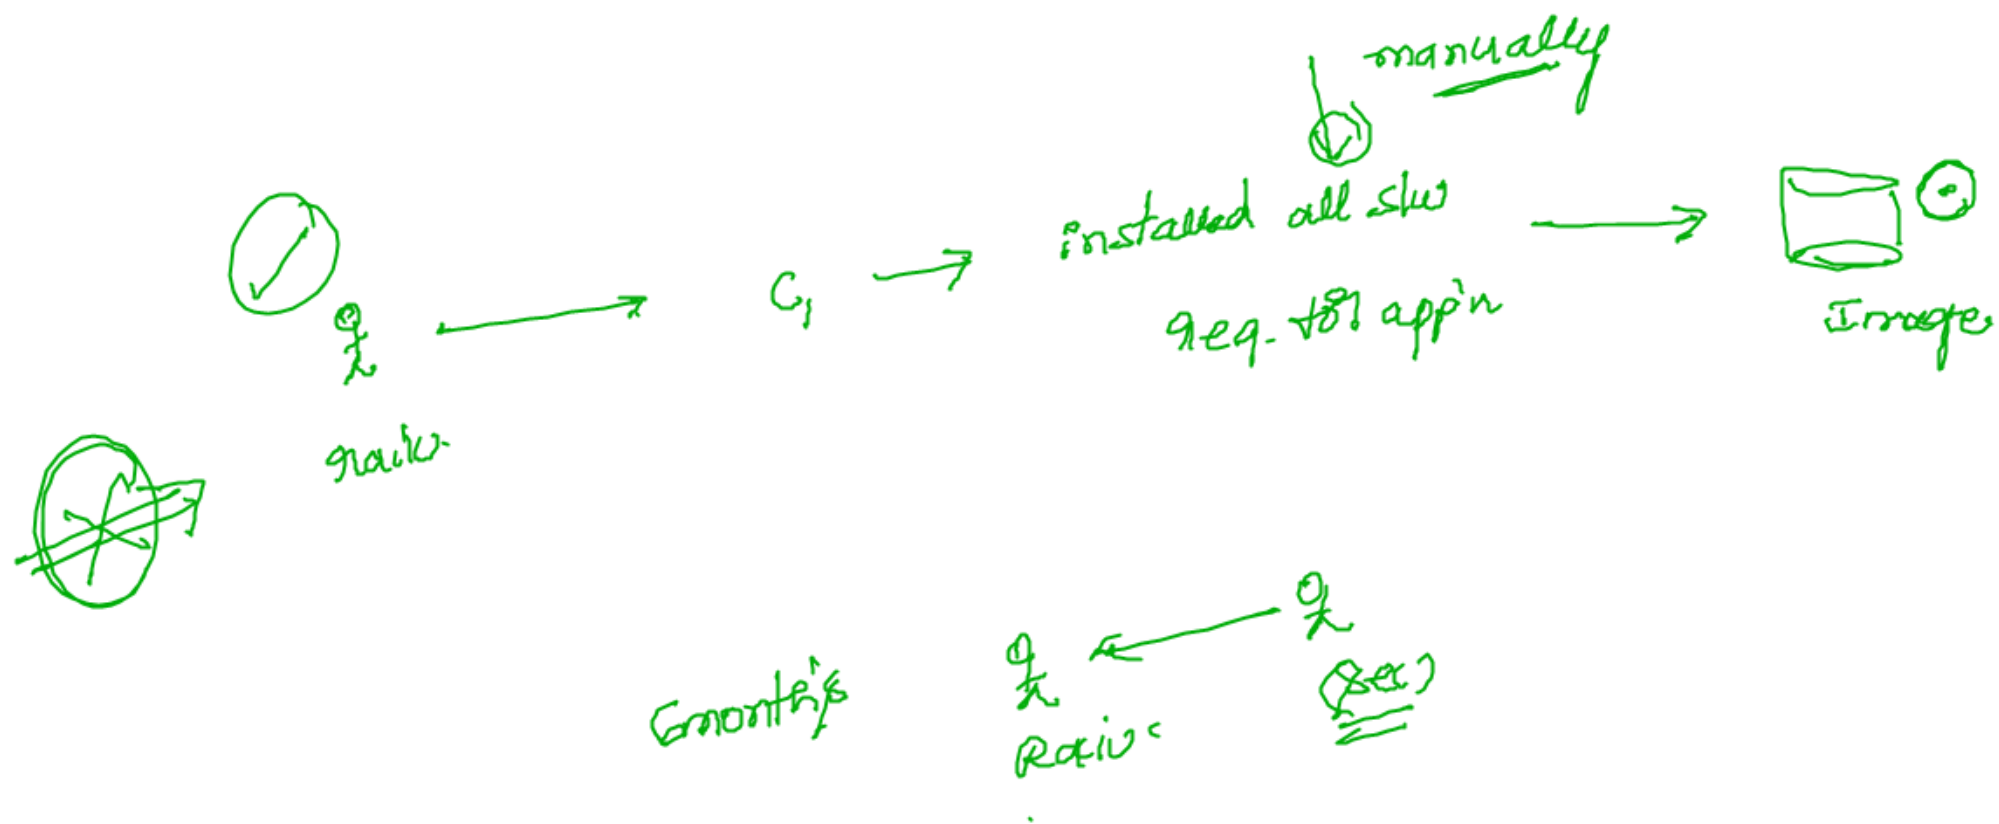 manually
installed all s/w
req. for app'n
C1
Image
6months
(sec)